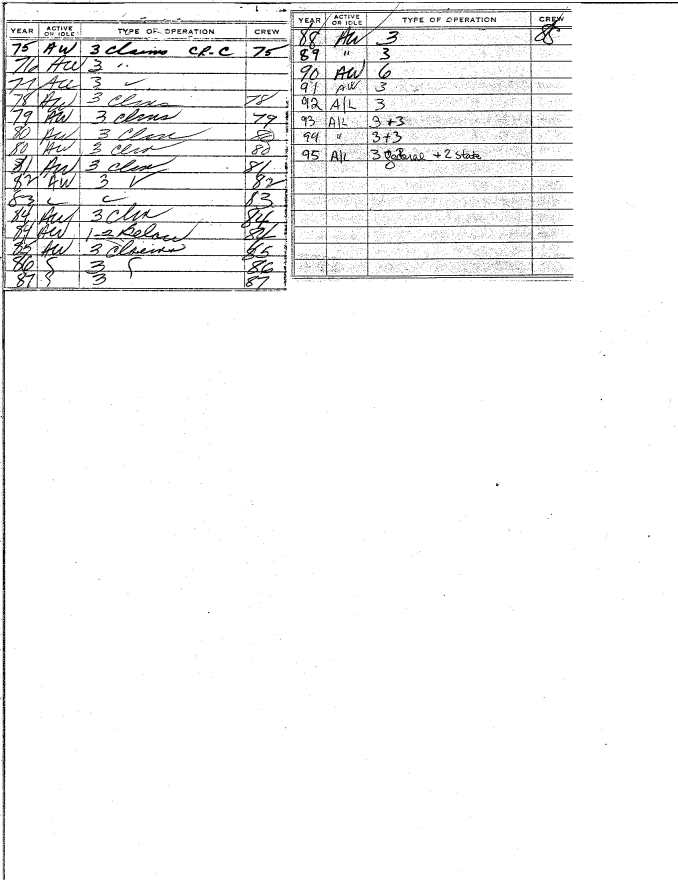 YEAR ACTIVE OR IDLE TYPE OF OPERATION CREW
75 AW 3 Claims CR-C 75
76 AW 3 "
77 AW 3 ✓
78 AW 3 Clms 78
79 AW 3 clms 79
80 AW 3 Clm 80
80 AW 3 Clm 80
81 AW 3 clm 81
82 AW 3 ✓ 82
83 83
84 AW 3 Clm 84
84 AW 1-2 Below 84
85 AW 3 Claims 85
86 3 86
87 3 87
YEAR ACTIVE OR IDLE TYPE OF OPERATION CREW
88 AW 3 88
89 " 3
90 AW 6
91 AW 3
92 A/L 3
93 A/L 3+3
94 " 3+3
95 A/L 3 Federal + 2 State